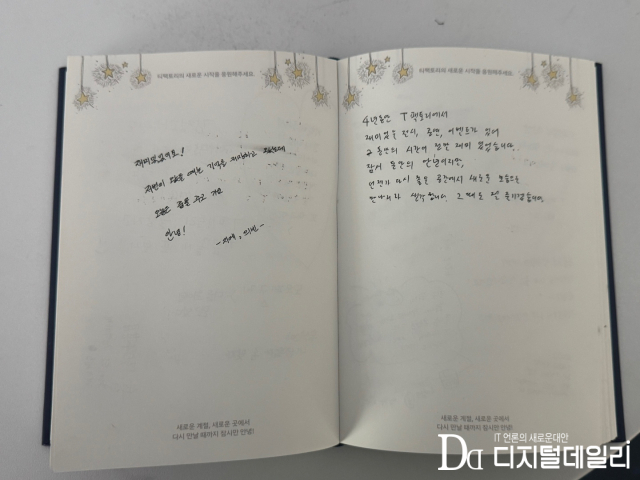 티팩토리의 새로운 시작을 응원해주세요.
재미있었어요!
저번이 왔을 때는 기억을 저장하고
오늘은 집을 주고 가요
안녕!
새로운 계절, 새로운 곳에서
다시 만날 때까지 잠시만 안녕!
티팩토리의 새로운 시작을 응원해주세요.
4년동안 T팩토리에서
재미있는 전시, 공연, 이벤트가 있어
그 동안의 시간이 정말 재미 있었습니다.
잠시 동안의 안녕이지만,
언젠가 다시 좋은 공간에서 새로운 모습으로
만나리라 생각합니다. 그 때도 전 즐기겠습니다.
새로운 계절, 새로운 곳에서
다시 만날 때까지 잠시만 안녕!
IT 언론의 새로운대안
DD 디지털데일리